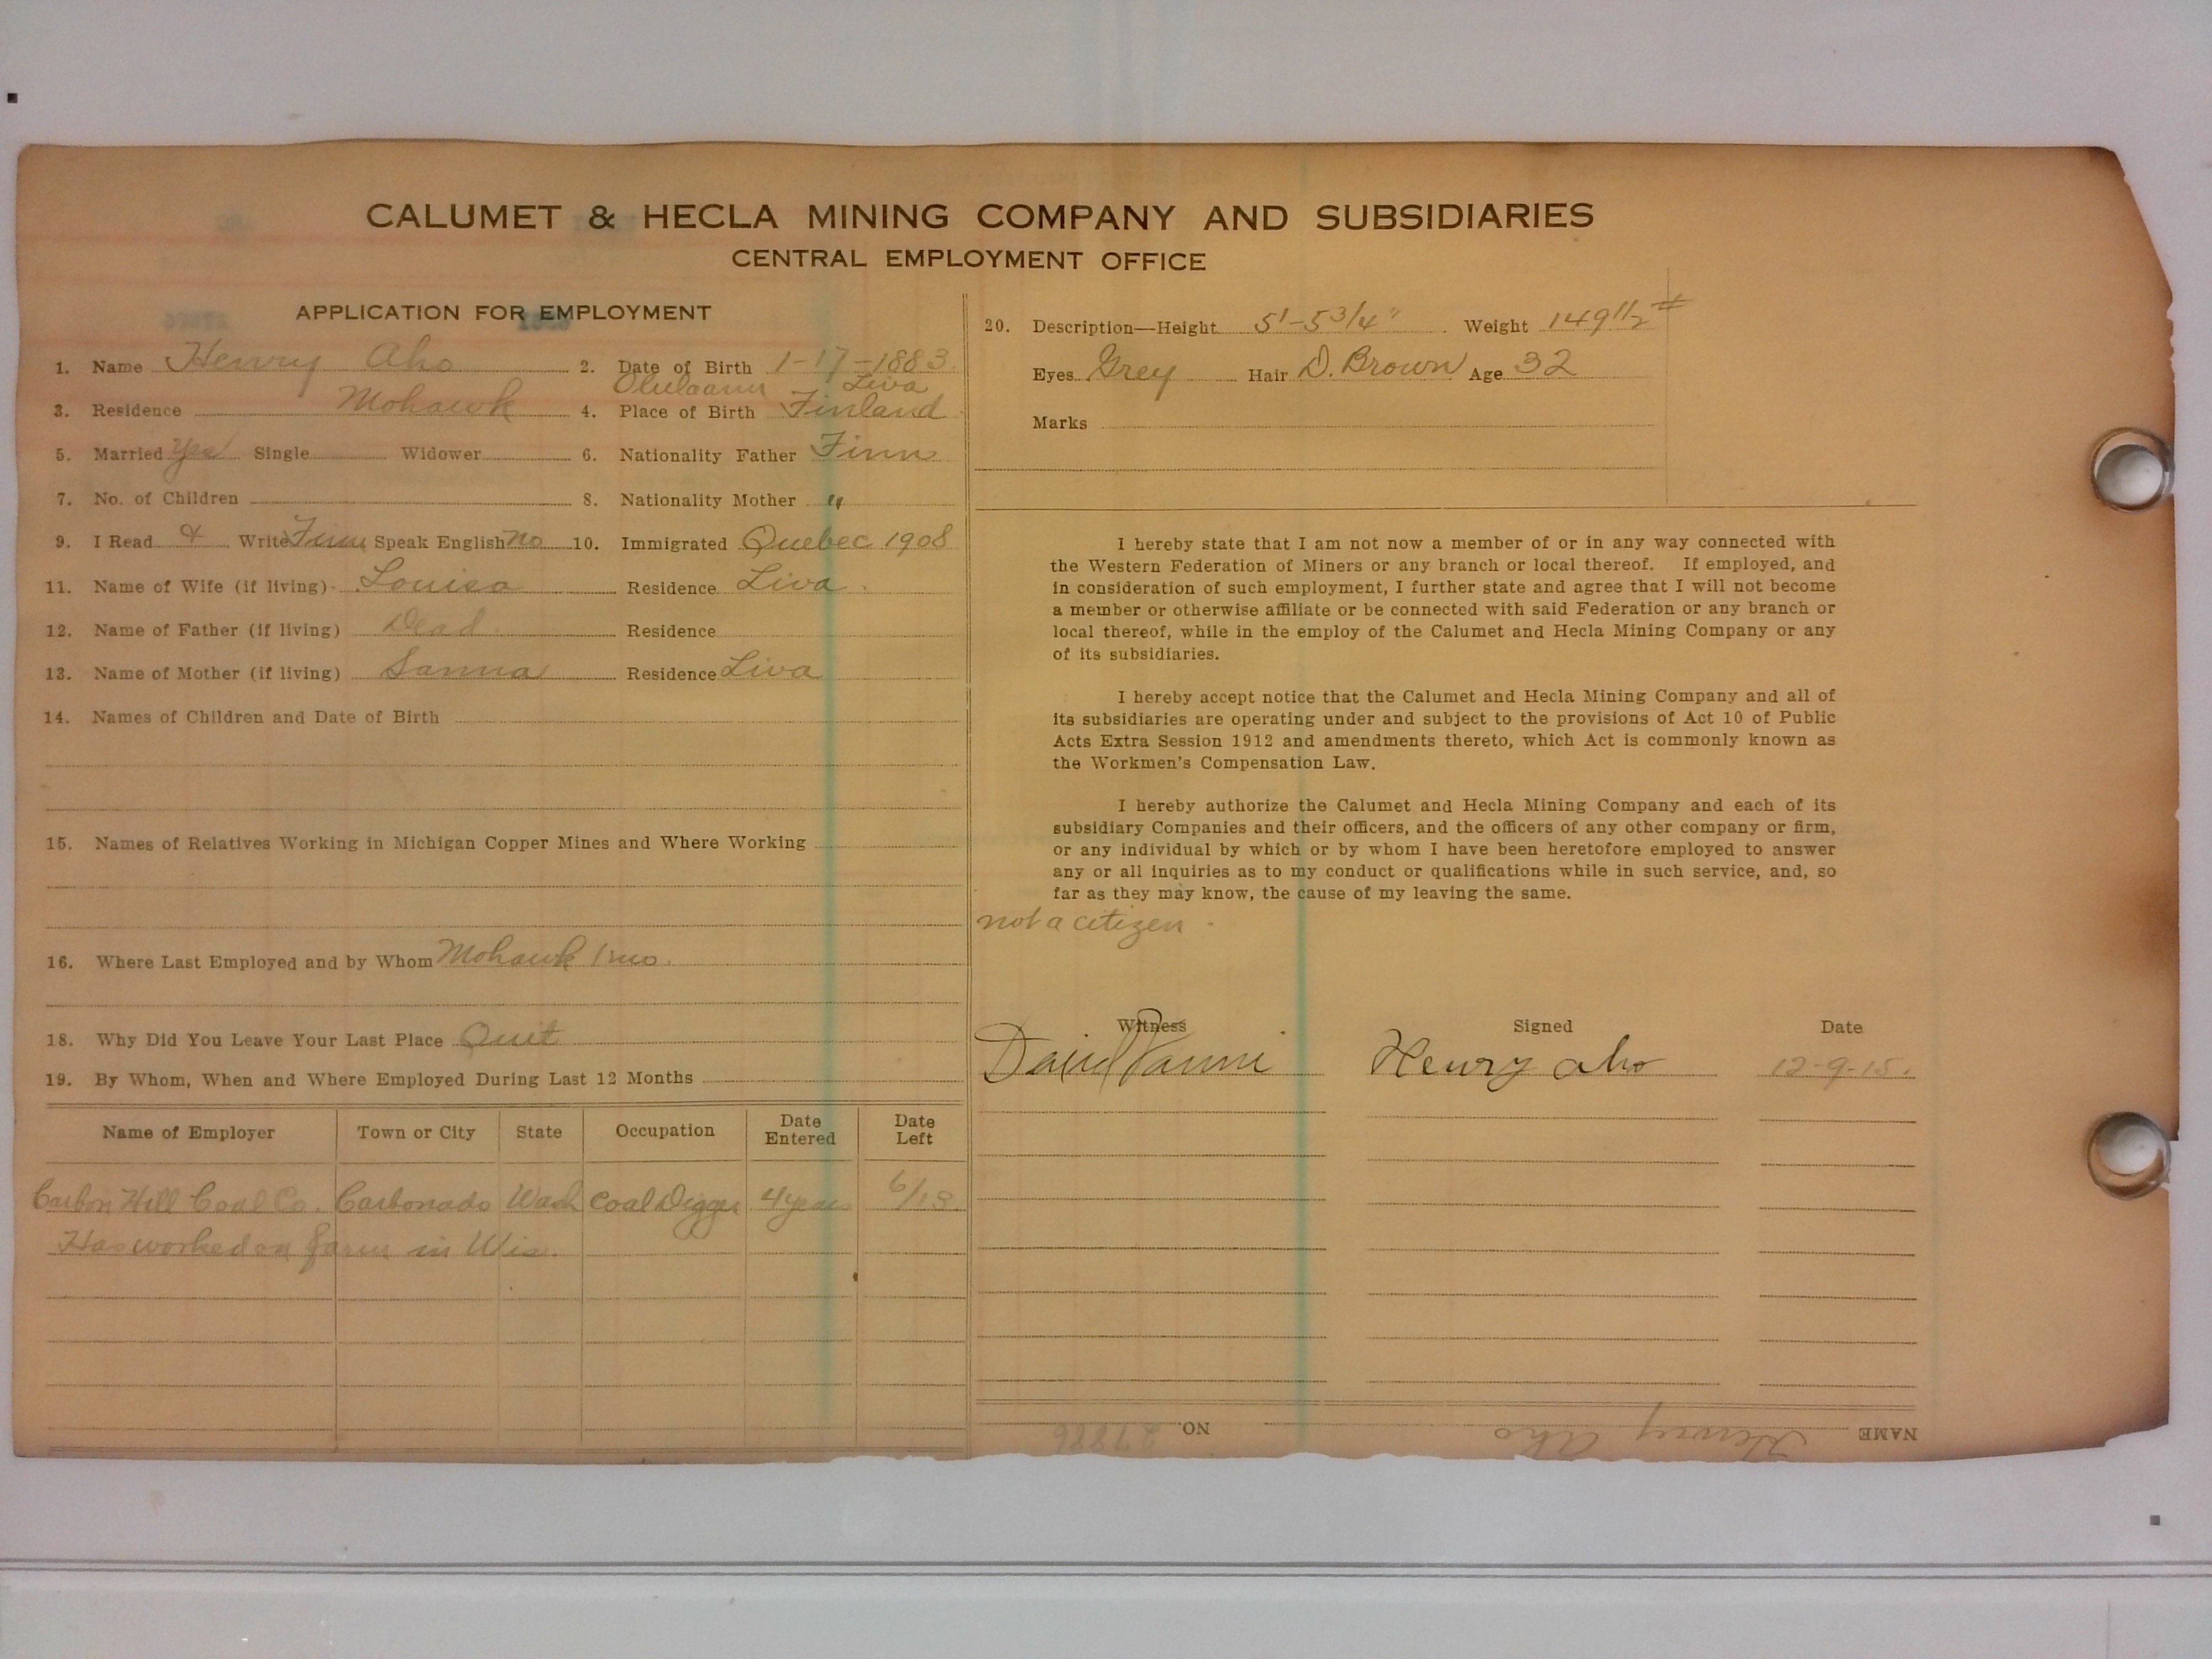 CALUMET & HECLA MINING COMPANY AND SUBSIDIARIES
CENTRAL EMPLOYMENT OFFICE
APPLICATION FOR EMPLOYMENT
1. Name Henry Aho 2. Date of Birth 1-17-1883
Liva
3. Residence Mohawk 4. Place of Birth Finland
5. Married Yes Single Widower 6. Nationality Father Finn
7. No. of Children 8. Nationality Mother "
9. I Read & Write Finn Speak English no 10. Immigrated Quebec 1908
11. Name of Wife (if living) Louisa Residence Liva
12. Name of Father (if living) Dead Residence
13. Name of Mother (if living) Sanna Residence Liva
14. Names of Children and Date of Birth
15. Names of Relatives Working in Michigan Copper Mines and Where Working
16. Where Last Employed and by Whom Mohawk 1 mo.
18. Why Did You Leave Your Last Place Quit
19. By Whom, When and Where Employed During Last 12 Months
Name of Employer Town or City State Occupation Date Entered Date Left
Carbon Hill Coal Co. Carbonado Wash Coal Digger 4 years 6/13.
Has worked on farm in Wis.
20. Description—Height 5'-5 3/4" Weight 149 1/2 #
Eyes Grey Hair D. Brown Age 32
Marks
I hereby state that I am not now a member of or in any way connected with
the Western Federation of Miners or any branch or local thereof. If employed, and
in consideration of such employment, I further state and agree that I will not become
a member or otherwise affiliate or be connected with said Federation or any branch or
local thereof, while in the employ of the Calumet and Hecla Mining Company or any
of its subsidiaries.
I hereby accept notice that the Calumet and Hecla Mining Company and all of
its subsidiaries are operating under and subject to the provisions of Act 10 of Public
Acts Extra Session 1912 and amendments thereto, which Act is commonly known as
the Workmen's Compensation Law.
I hereby authorize the Calumet and Hecla Mining Company and each of its
subsidiary Companies and their officers, and the officers of any other company or firm,
or any individual by which or by whom I have been heretofore employed to answer
any or all inquiries as to my conduct or qualifications while in such service, and, so
far as they may know, the cause of my leaving the same.
not a citizen
Witness Signed Date
David Panni Henry Aho 12-9-15.
NAME Henry Aho NO. 27886